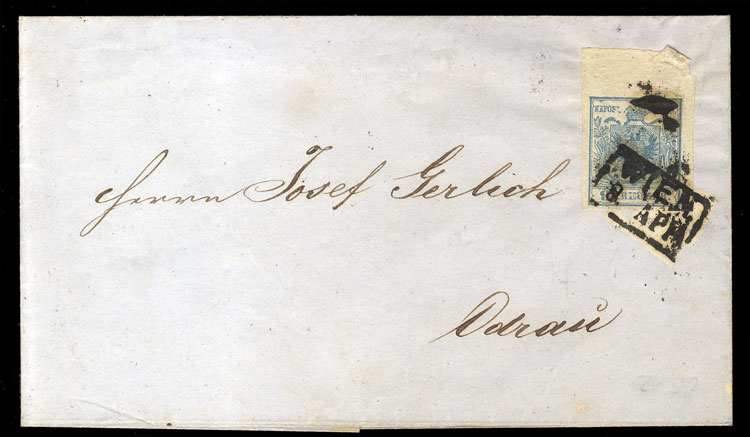 KKPOST
WIEN
8 APR
Herrn Josef Gerlich
Odrau